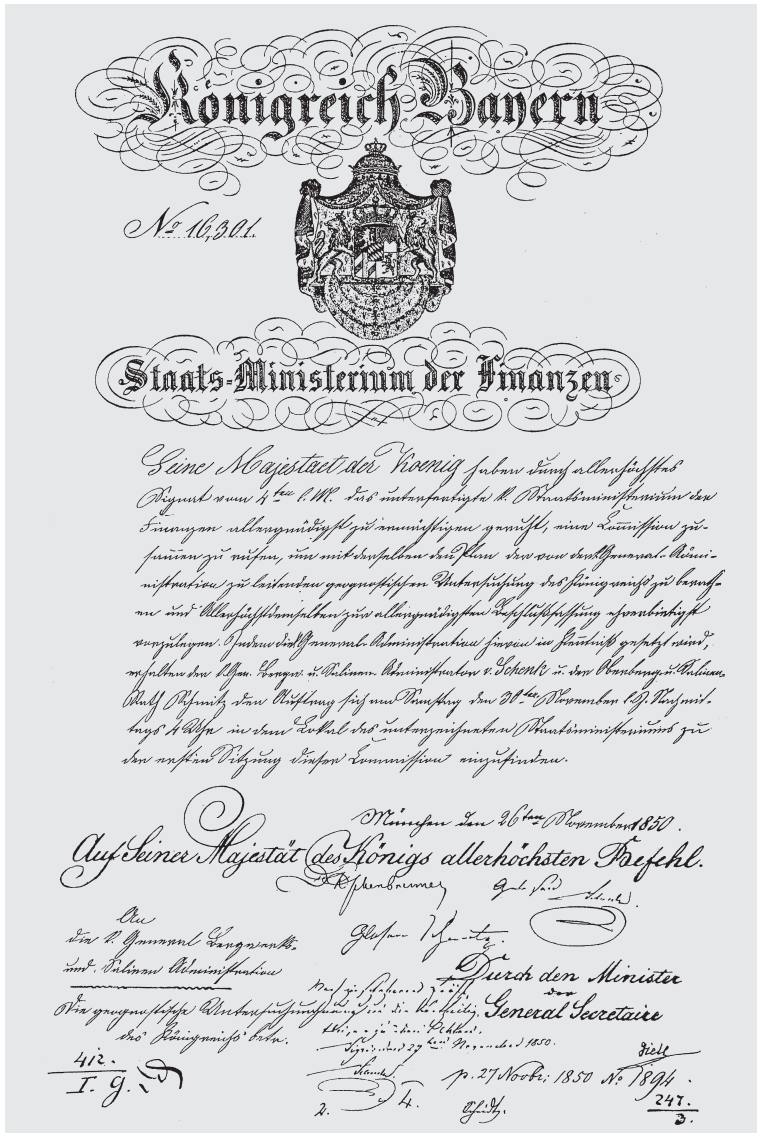 Königreich Bayern
No 16,301.
Staats-Ministerium der Finanzen
Seine Majestaet der Koenig haben durch allerhöchstes
Signat vom 4ten l. M. das unterfertigte k. Staatsministerium der
Finanzen allergnädigst zu ermächtigen geruht, eine Commission zu-
sammen zu rufen, um mit derselben den Plan der von der General-Admi-
nistration zu leitenden geognostischen Untersuchung des Königreichs zu berath-
en und Allerhöchstdemselben zur allergnädigsten Beschlußfassung ehrerbietigst
vorzulegen. Indem die General-Administration hievon in Kenntniß gesetzt wird,
erhalten der k. Gen. Bergw. u. Salinen-Administrator v. Schenk u. der Oberberg u. Salinen-
Rath Schmitz den Auftrag sich am Samstag den 30ten November l. J. Nachmit-
tags 4 Uhr in dem Lokal des unterzeichneten Staatsministeriums zu
der ersten Sitzung dieser Commission einzufinden.
München den 26ten November 1850.
Auf Seiner Majestät des Königs allerhöchsten Befehl.
An
die k. General Bergwerks-
und Salinen Administration
Schmitz.
Durch den Minister
der
General Secretaire
Die geognostische Untersuchung
des Königreichs betr.
27ten November 1850.
412.
I. G.
p. 27 Novbr: 1850 No 1894.
247.
3.
2.
4.